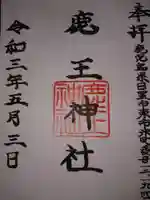 奉拝
鹿児島県日置市東市来町
鹿王神社
令和三年五月三日